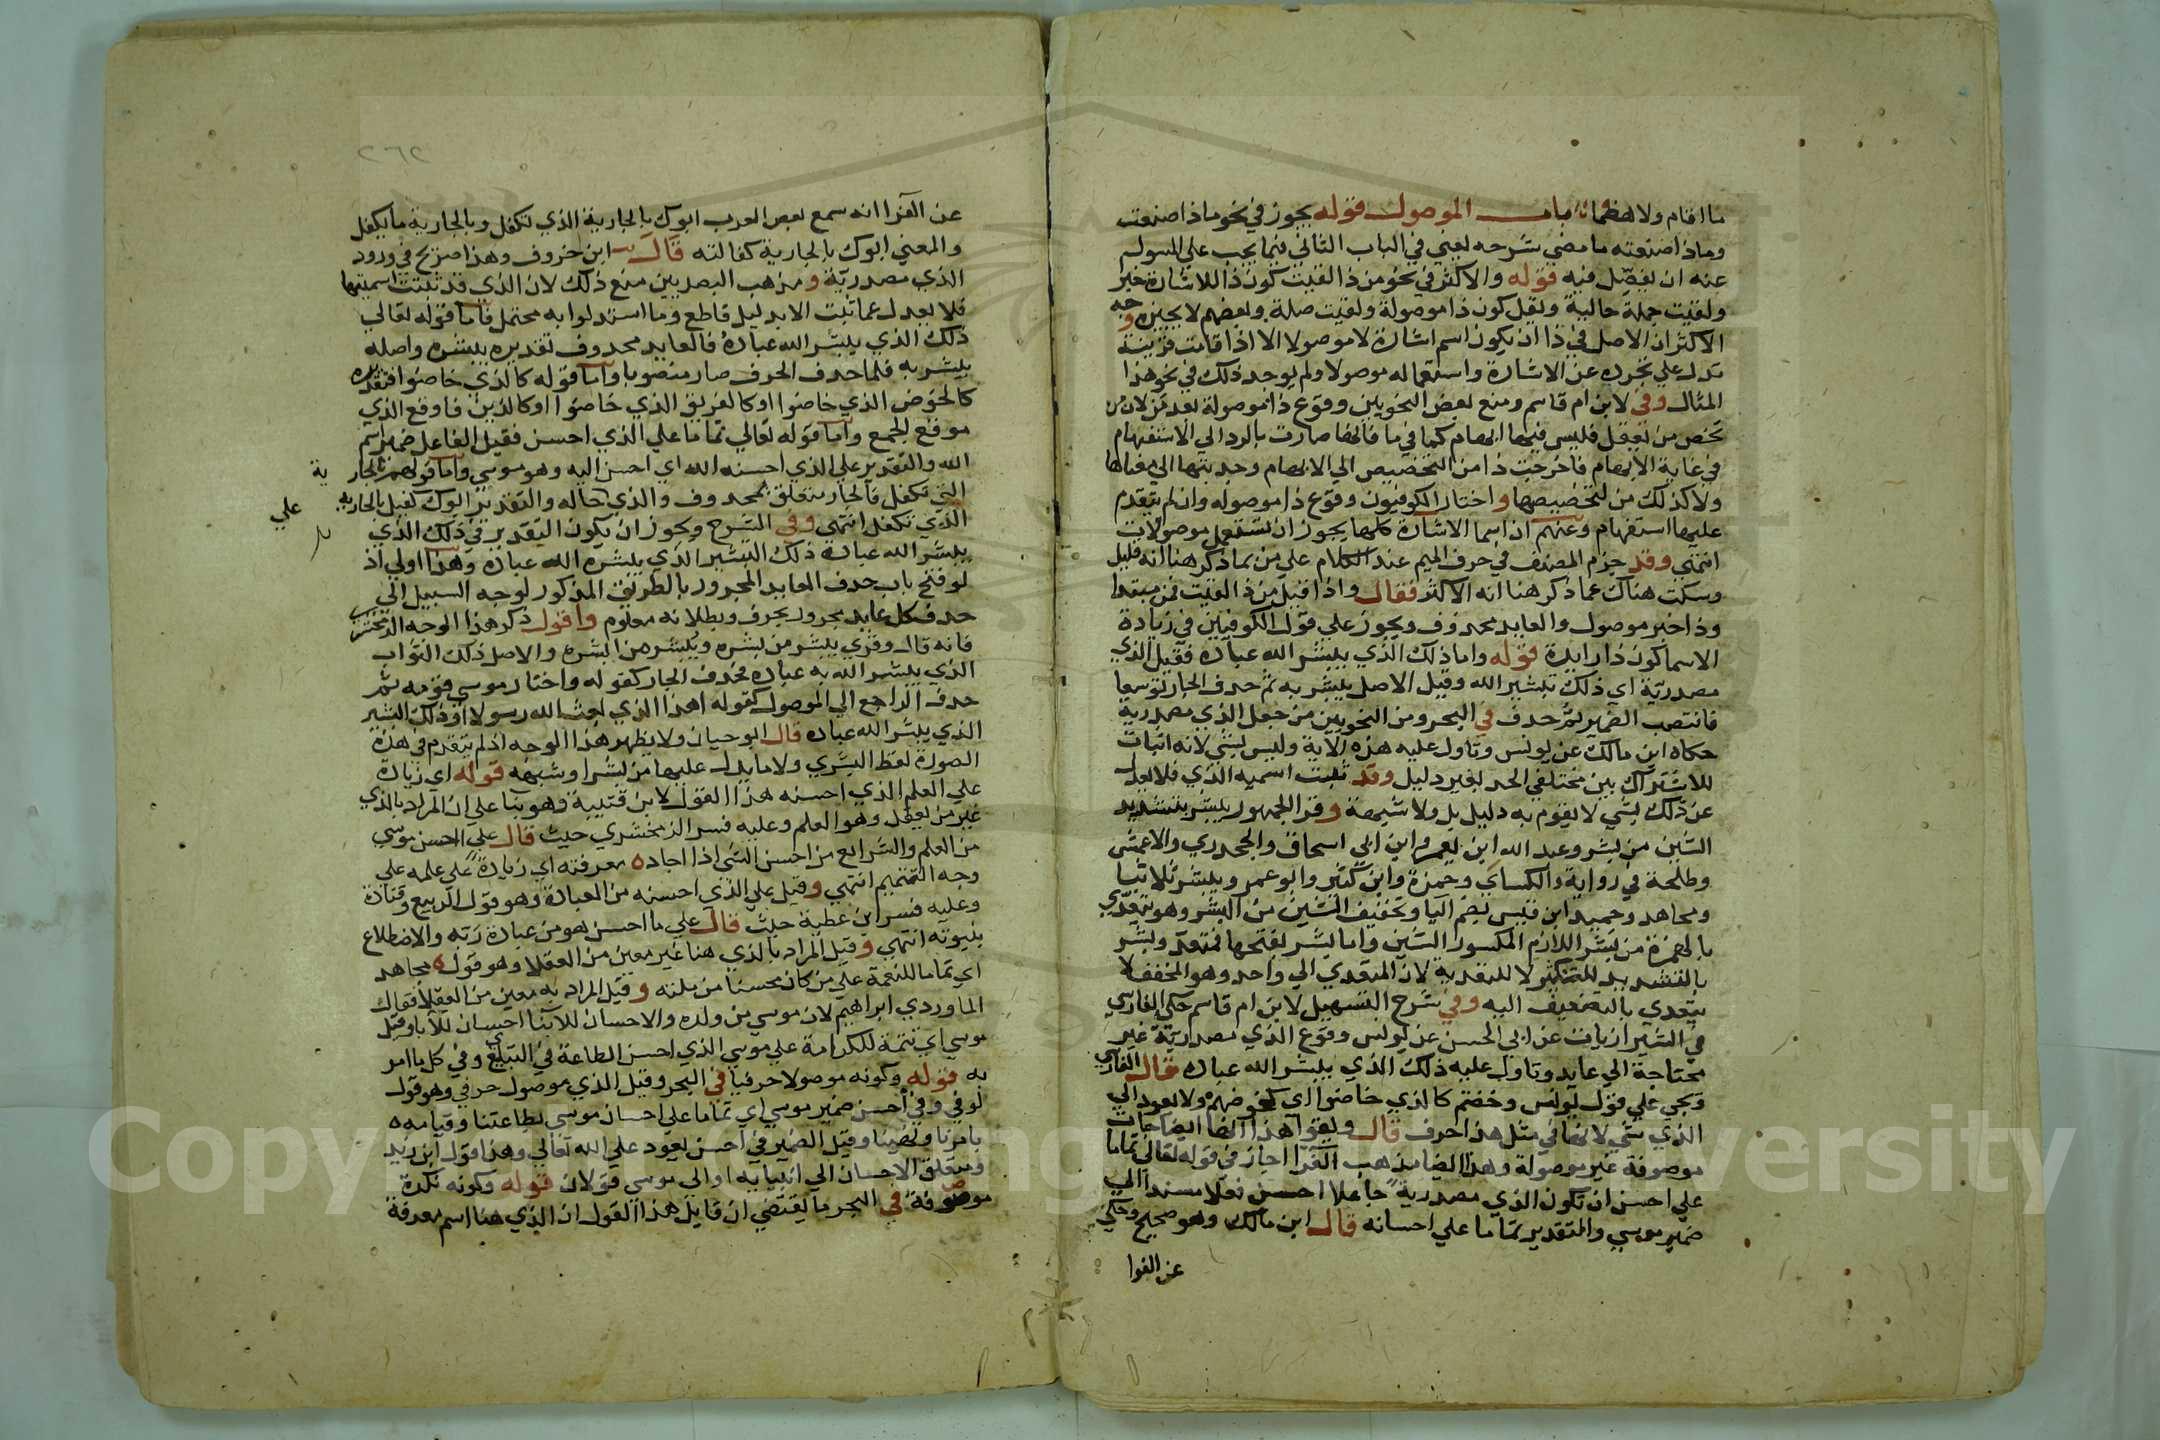 ما اقام ولا هضما ثا باب الموصول قوله يجوز في نحو ماذا صنعت
وماذا صنعته ما مضي شرحه يعني في الباب الثاني فيما يجب علي المسول
عنه ان يفصل فيه قوله والاكثر في نحو من ذا لقيت كون ذا للاشارة خبر
ولقيت جملة حالية ويقل كون ذا موصولة ولقيت صلة وبعضهم لا يجيزه وجه
الاكثر ان الاصل في ذا ان يكون اسم اشارة لا موصولا الا اذا قامت قرينة
تدل علي تجرده عن الاشارة واستعماله موصولا ولم يوجد ذلك في نحو هذا
المثال وفي لابن ام قاسم ومنع بعض النحويين وقوع ذا موصولة بعد من لان من
تخص من يعقل فليس فيها ابهام كما في ما فانها صارت بالرد الي الاستفهام
في غاية الابهام فاخرجت ذا من التخصيص الي الابهام وجذبتها الي معناها
ولا كذلك من لتخصيصها واختار الكوفيون وقوع ذا موصوله وان لم يتقدم
عليها استفهام وعنهم ان اسما الاشارة كلها يجوز ان تستعمل موصولات
انتهي وقد جزم المصنف في حرف الميم عند الكلام علي من بما ذكر هنا انه قليل
وسكت هناك عما ذكر هنا انه الاكثر فقال واذا قيل من ذا لقيت فمن مبتدا
وذا خبر موصول والعايد محذوف ويجوز علي قول الكوفيين في زيادة
الاسما كون ذا زايدة قوله واما ذلك الذي يبشر الله عباده فقيل الذي
مصدرية اي ذلك تبشير الله وقيل الاصل يبشر به ثم حذف الجار توسعا
فانتصب الضمير ثم حذف في البحر ومن النحويين من جعل الذي مصدرية
حكاه ابن مالك عن يونس وتاول عليه هذه الاية وليس بشي لانه اثبات
للاشتراك بين مختلفي الحد بغير دليل وقد ثبتت اسمية الذي فلا يعدل
عن ذلك بشي لا يقوم به دليل بل ولا شبهة وقرا الجمهور يبشر بتشديد
الشين من بشر وعبد الله ابن يعمر وابن ابي اسحاق والجحدري والاعمش
وطلحة في رواية والكساي وحمزة وابن كثير وابو عمرو يبشر ثلاثيا
ومجاهد وحميد ابن قيس بضم اليا وتخفيف الشين من ابشر وهو يتعدي
بالهمزة من بشر اللازم المكسور الشين واما بشر بفتحها فمتعد وبشر
بالتشديد للتكثير لا للتعدية لان المتعدي الي واحد وهو المخفف لا
يتعدي بالتضعيف اليه وفي شرح التسهيل لابن ام قاسم حكي الفارسي
في الشيرازيات عن ابي الحسن عن يونس وقوع الذي مصدرية غير
محتاجة الي عايد وتاول عليه ذلك الذي يبشر الله عباده قال الفارسي
ويجي علي قول يونس وخضتم كالذي خاضوا اي كخوضهم ولا يعود الي
الذي شي لانها في مثل هذا حرف قال ويقوا هذا انها ايضا جات
موصوفة غير موصولة وهذا ايضا مذهب الفرا اجاز في قوله تعالي تماما
علي احسن ان تكون الذي مصدرية جاعلا احسن فعلا مسندا الي
ضمير موسي والتقدير تماما علي احسانه قال ابن مالك وهو صحيح وحكي
عن الفرا
٢٦٢
عن الفرا انه سمع بعض العرب ابوك بالجارية الذي تكفل وبالجارية ما يكفل
والمعني ابوك بالجارية كفالته قال ابن خروف وهذا صريح في ورود
الذي مصدرية ومذهب البصريين منع ذلك لان الذي قد ثبتت اسميتها
فلا يعدل عما ثبت الا بدليل قاطع وما استدلوا به محتمل فاما قوله تعالي
ذلك الذي يبشر الله عباده فالعايد محذوف تقديره يبشره واصله
يبشر به فلما حذف الحرف صار منصوبا واما قوله كالذي خاضوا فتقديره
كالخوض الذي خاضوا او كالفريق الذي خاضوا او كالذين فاوقع الذي
موقع الجمع واما قوله تعالي تماما علي الذي احسن فقيل الفاعل ضمير اسم
الله والتقدير علي الذي احسنه الله اي احسن اليه وهو موسي واما قولهم بالجار
ية
التي تكفل فالجار متعلق بمحذوف والذي حاله والتقدير ابوك كفيل بالجارية
علي
الذي تكفل انتهي وفي الشرح ويجوز ان يكون التقدير في ذلك الذي
يبشر الله عباده ذلك التبشير الذي يبشره الله عباده وهذا اولي اذ
لو فتح باب حذف العايد المجرور بالطريق المذكور لوجه السبيل الي
حذف كل عايد مجرور بحرف وبطلانه معلوم واقول ذكر هذا الوجه الزمخشري
فانه قال وقري يبشر من بشره ويبشر من ابشره والاصل ذلك الثواب
الذي يبشر الله به عباده فحذف الجار كقوله واختار موسي قومه ثم
حذف الراجع الي الموصول كقوله اهذا الذي بعث الله رسولا او ذلك التبشير
الذي يبشر الله عباده قال ابو حيان ولا يظهر هذا الوجه اذ لم يتقدم في هذه
الصورة لفظ البشري ولا ما يدل عليها من بشر او شبهه قوله اي زيادة
علي العلم الذي احسنه هذا القول لابن قتيبة وهو بنا علي ان المراد بالذي
غير من يعقل وهو العلم وعليه فسر الزمخشري حيث قال علي احسن موسي
من العلم والشرايع من احسن الشي اذا اجاده معرفته اي زيادة علي علمه علي
وجه التتميم انتهي وقيل علي الذي احسنه من العبادة وهو قول الربيع وقتادة
وعليه فسر ابن عطية حيث قال علي ما احسن هو من عبادة ربه والاضطلاع
بنبوته انتهي وقيل المراد بالذي هنا غير معين من العقلا وهو قول مجاهد
اي تماما للنعمة علي من كان محسنا من ملته وقيل المراد به معين من العقلا فقال
الماوردي ابراهيم لان موسي من ولده والاحسان للابنا احسان للابا وقيل
موسي اي تتمة للكرامة علي موسي الذي احسن الطاعة في التبليغ وفي كل ما امر
به قوله وكونه موصولا حرفيا في البحر وقيل الذي موصول حرفي وهو قول
لوفي وفي احسن ضمير موسي اي تماما علي احسان موسي بطاعتنا وقيامه
بامرنا ونهينا وقيل الضمير في احسن يعود علي الله تعالي وهذا قول ابن زيد
ومتعلق الاحسان الي انبيايه او الي موسي قولان قوله وكونه نكرة
موصوفة في البحر ما يقتضي ان قايل هذا القول ان الذي هنا اسم معرفة
Copyright © King Saud University